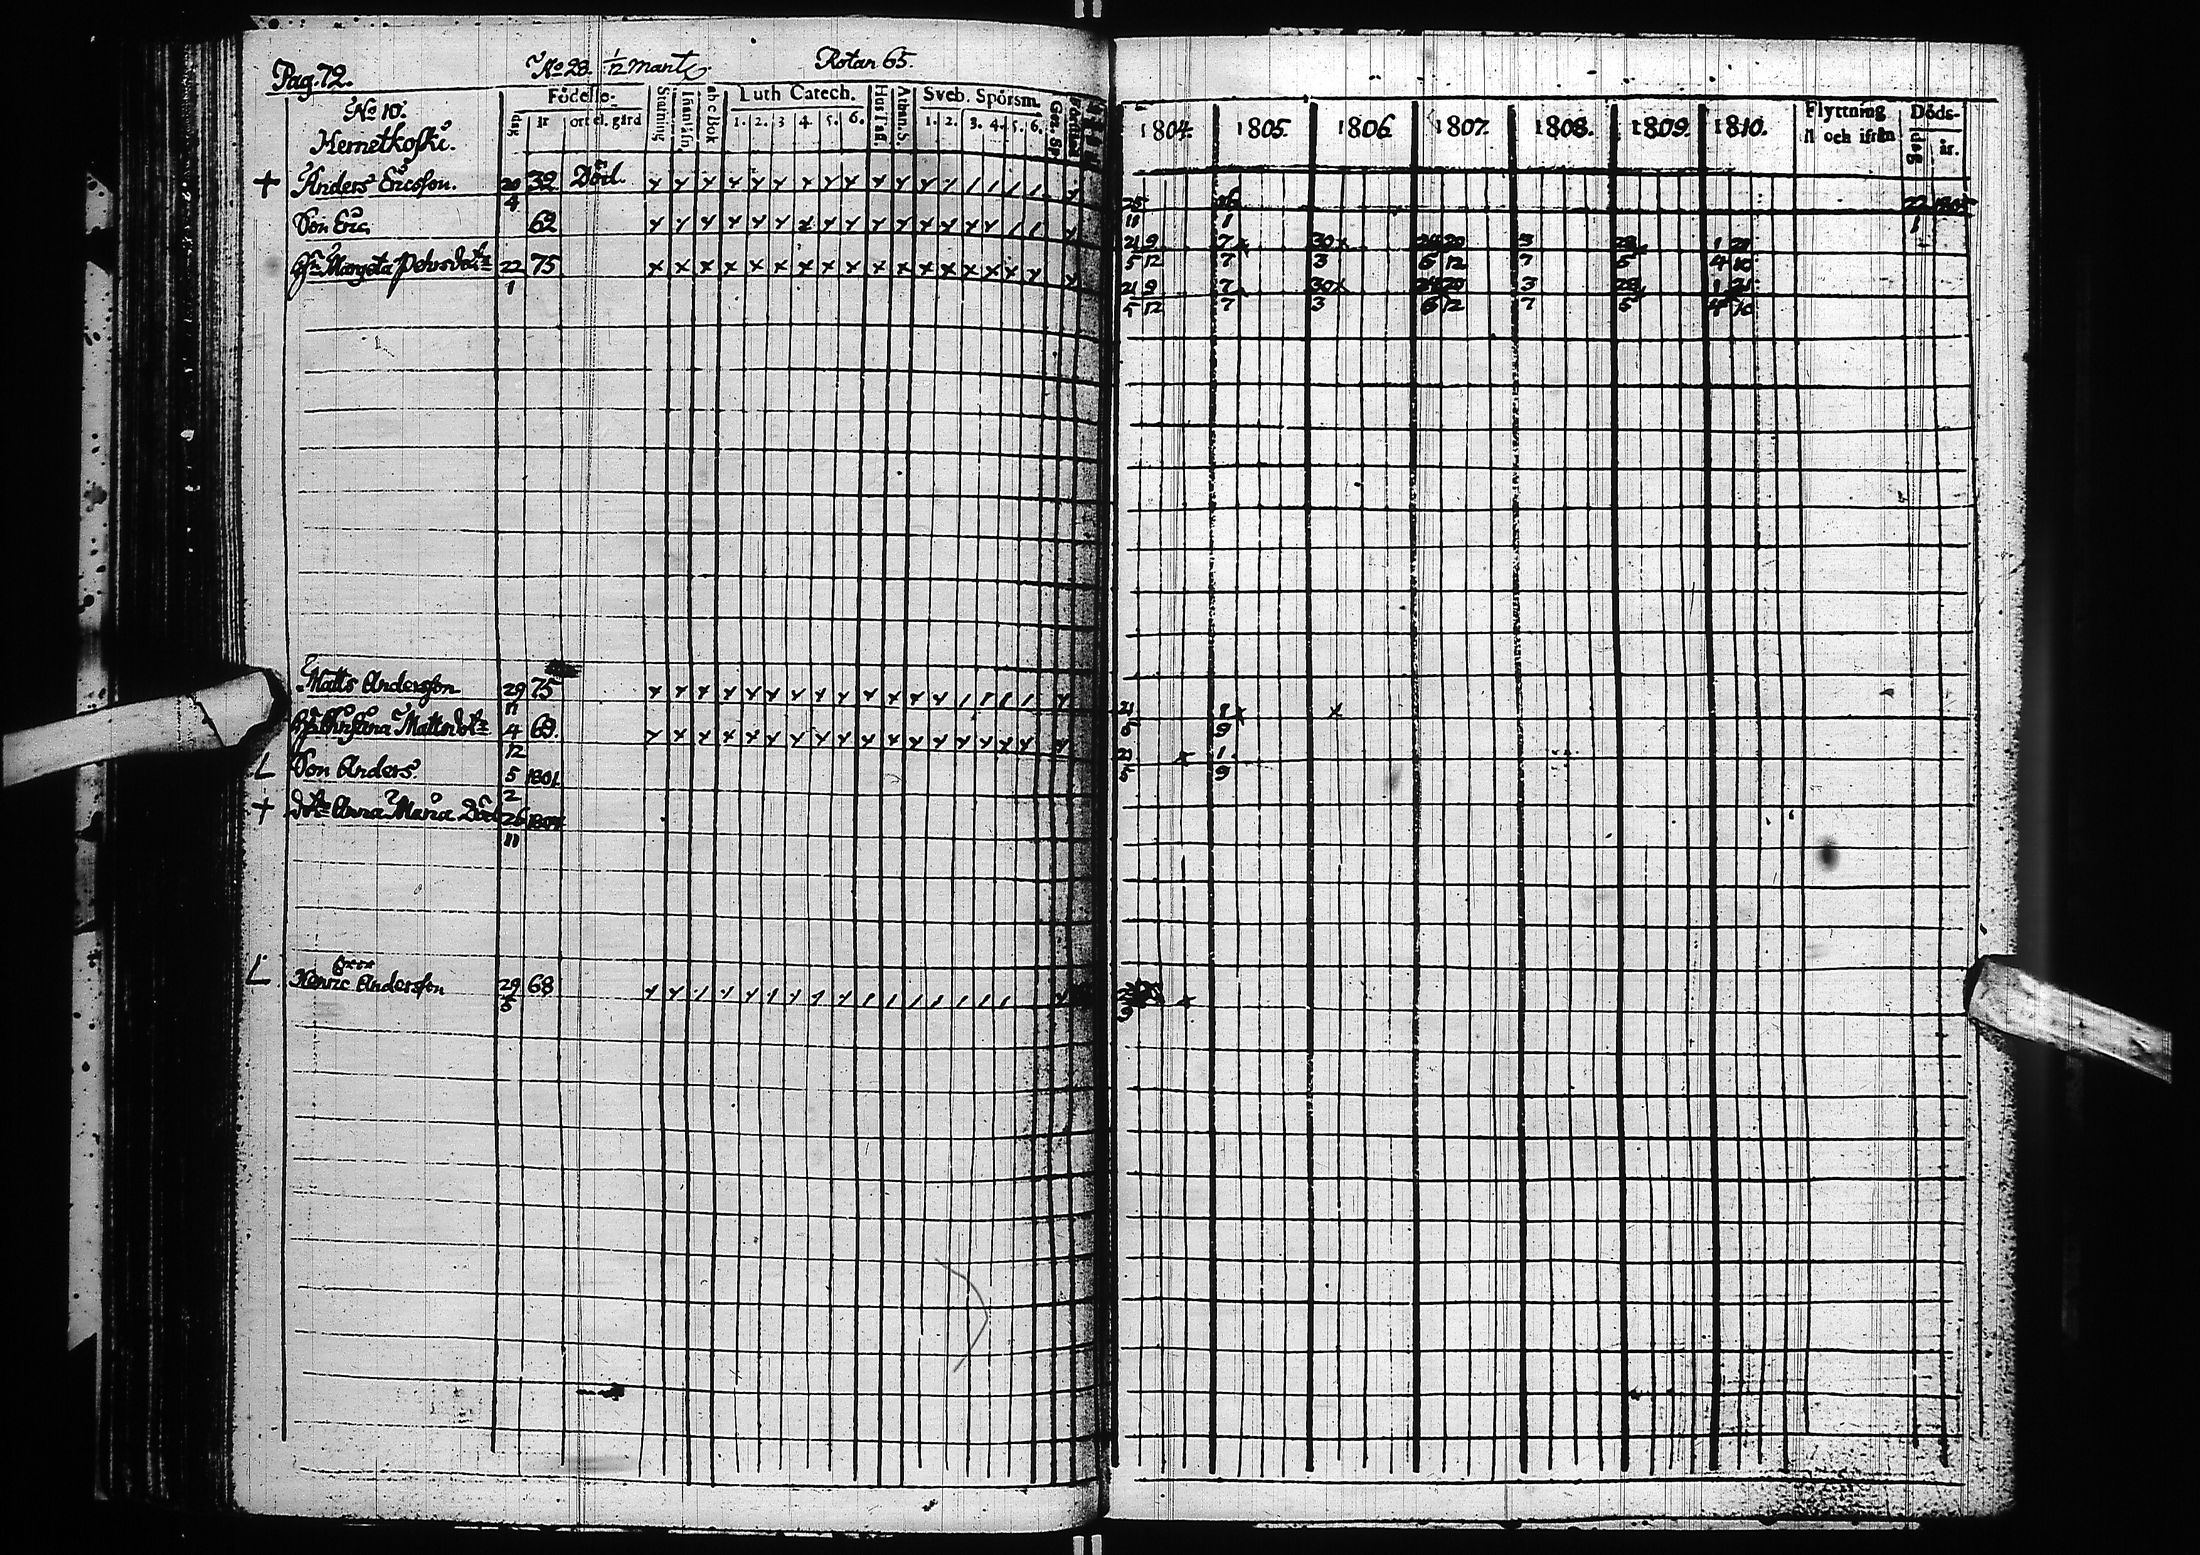 Pag. 72. No 28. 1/12 mant. Rotan 65.
No 10. Födelse- Stafning Innanläsn. abc Bok Luth Catech. Hustafl. Athan. S. Sveb. Spörsm. Gez. Sp.
Hernetkoski. dag år ort el. gård 1. 2. 3 4 5. 6. 1. 2. 3. 4. 5. 6.
1804. 1805. 1806 1807. 1808. 1809. 1810. Flyttning Döds-
och ifrån dag år.
+ Anders Ericsson. 20/4 32 Död. 25/11 16/1 22/1 1805
Son Eric 62 21/5 9/12 7/7 x 30/3 x 20/12 3/7 28/5 1/4 21/10
Hu Margeta Pehrsdotr 22/1 75 21/5 9/12 7/7 30/3 x 20/12 3/7 28/5 1/4 21/10
Matts Andersson 29/11 75 21/5 1/9 x x
Hu Christina Mattsdotr 4/12 69 21/5 x 1/9
L Son Anders 5/2 1801
+ dotr Anna Maria Död 26/11 1804
L Henric Andersson 29/5 68 x